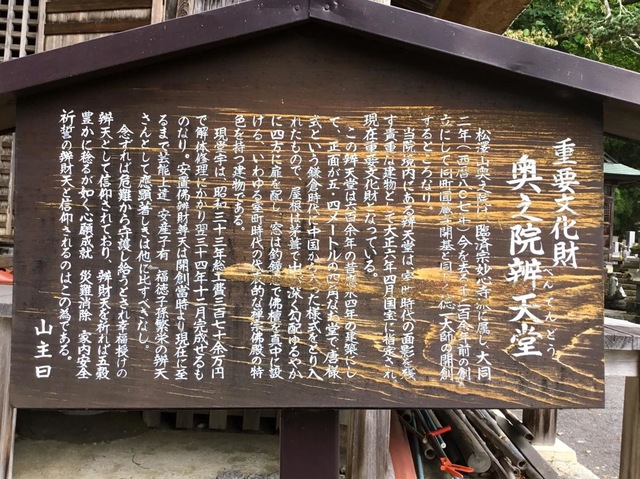 重要文化財
奥之院辨天堂
べんてんどう
松澤山奥之院は、臨済宗妙心寺派に属し、大同
二年(西暦八〇七年)今を去る千二百余年前の創
立にして同町圓蔵寺開基と同じく徳一大師の開創
するところなり。
当院境内にある辨天堂は、室町時代の面影を残
す貴重な建物として大正六年四月国宝に指定され
現在重要文化財となっている。
この辨天堂は六百余年の昔應永四年の建築にし
て、正面が五・四メートルの四角なお堂で唐様
式という鎌倉時代に中国から入った様式をとり入
れたもので、屋根は茅葺で出が深く勾配ゆるやか
に四方に扉を配し、窓は釣鐘形で佛檀を真中に設
ける、いわゆる室町時代の代表的な禅宗佛殿の特
色を持つ建物である。
現堂宇は、昭和三十三年総工費三百七十余万円
で解体修理にかかり翌三十四年十二月完成せるも
のなり。安置佛辨財尊天は開創当時より現在に至
るまで芸能上達 安産子育 福徳子孫繁栄の辨天
さんとして悪顕著しきは他に比すべきなし。
念ずれば危難から守護し給うとされ幸福授けの
辨天として信仰されており、辨財天を祈れば五穀
豊かに稔るが如く心願成就 災難消除 家内安全
祈誓の辨財天と信仰されるのはこの為である。
山主曰